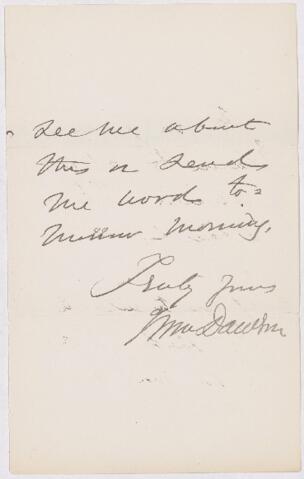 see me about
this or send
me word to=
morrow morning.
Truly yours
Dawson